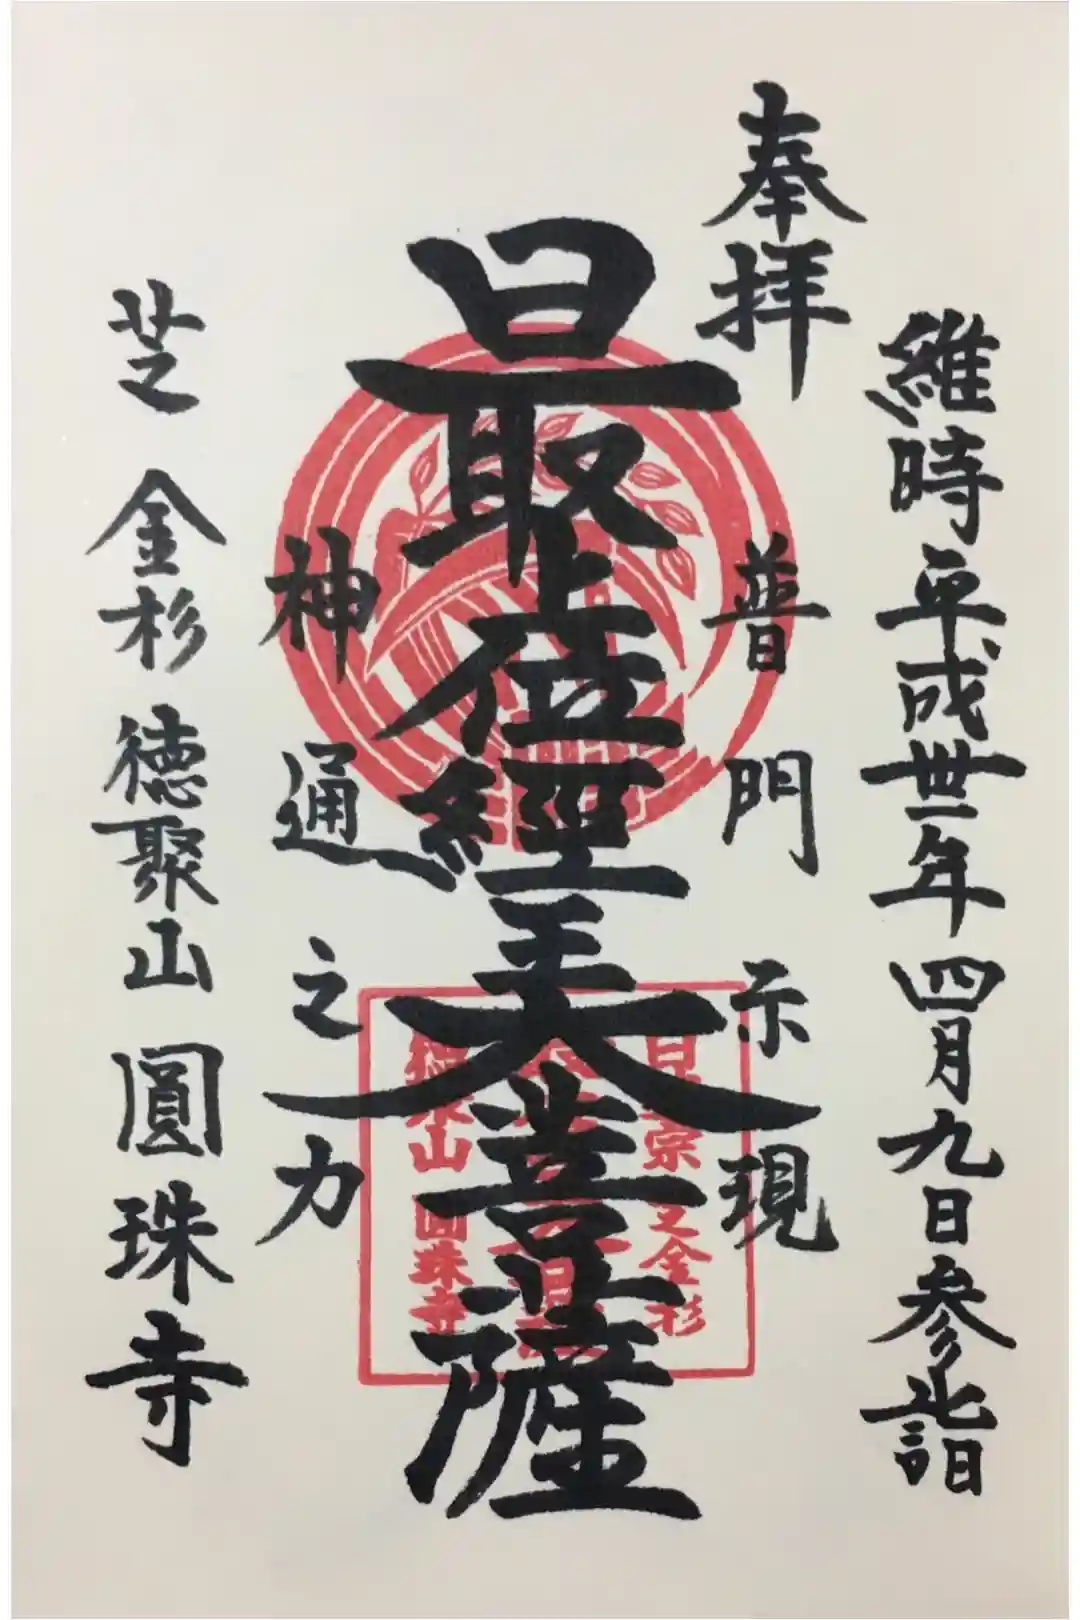 奉拝
維時平成丗一年四月九日参詣
普門示現
最上位經王大菩薩
神通之力
芝 金杉 徳聚山 圓珠寺
金杉
圓珠寺